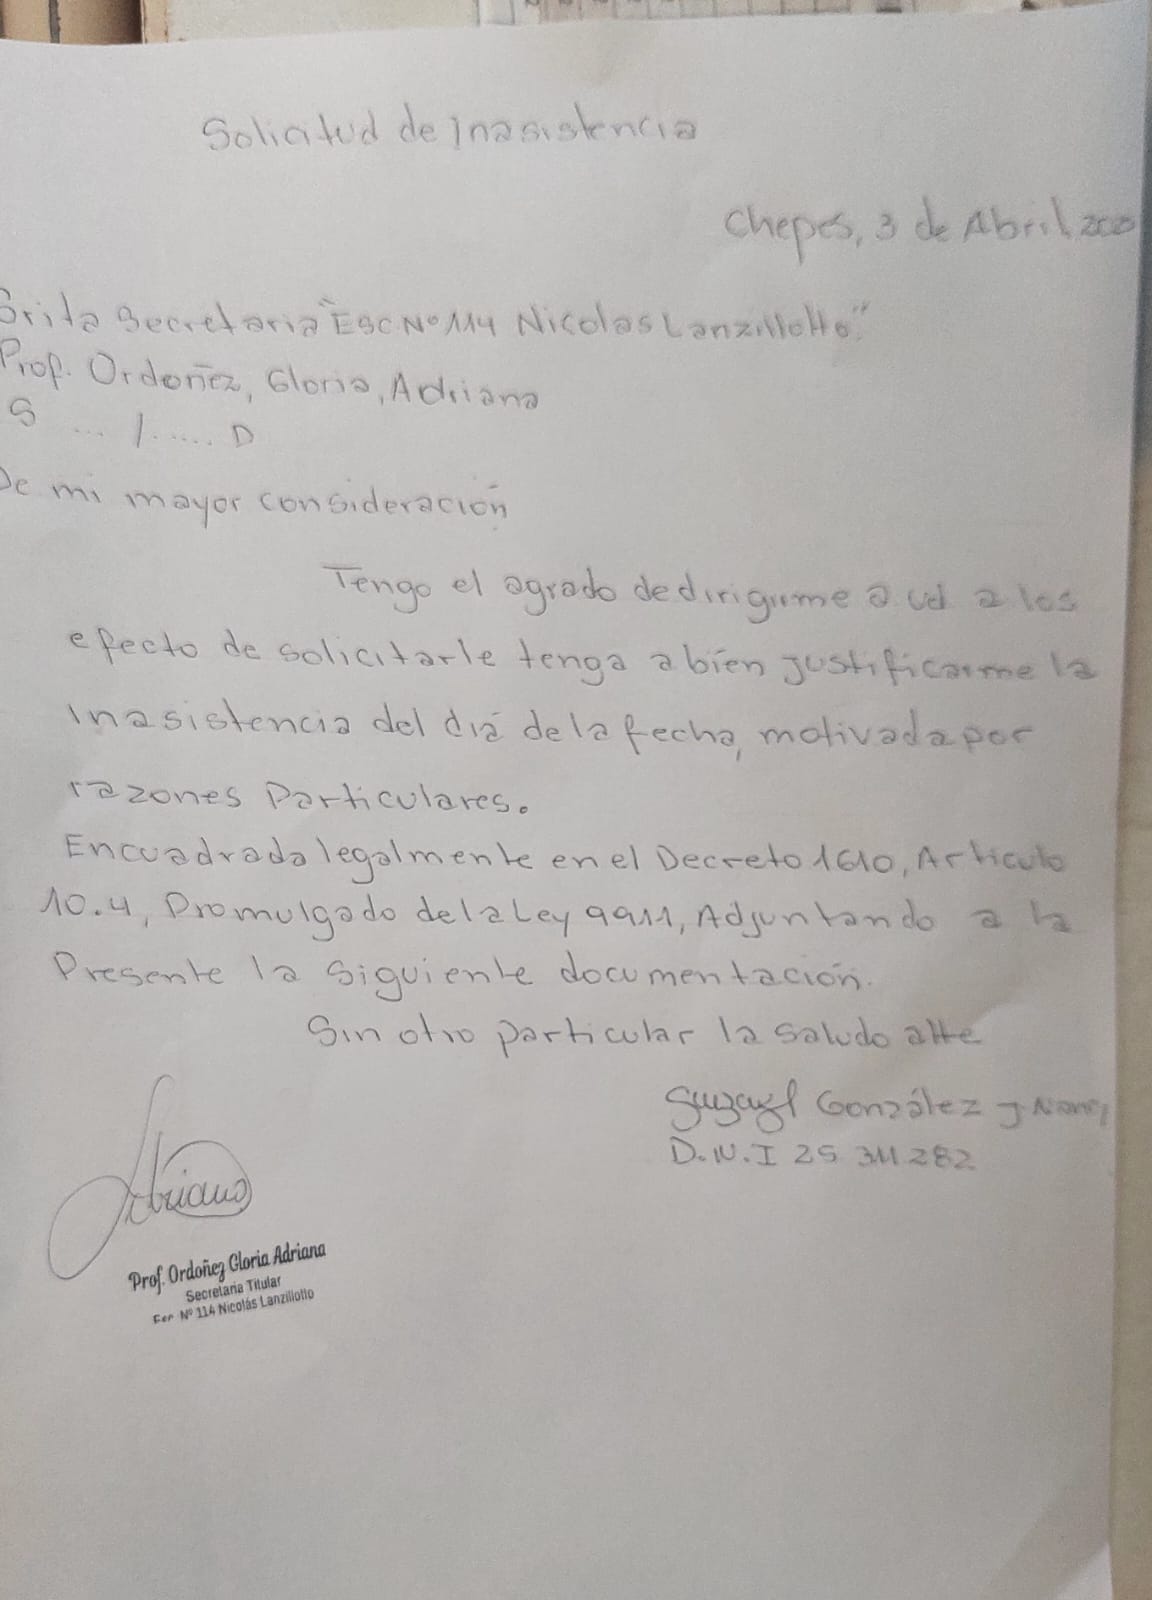 Solicitud de Inasistencia
Chepes, 3 de Abril
Srita Secretaria "ESC Nº 114 Nicolas Lanzillotto"
Prof. Ordoñez, Gloria, Adriana
S ... /..... D
De mi mayor consideración
Tengo el agrado de dirigirme a ud a los
efecto de solicitarle tenga a bien justificarme la
Inasistencia del día de la fecha, motivada por
razones Particulares.
Encuadrada legalmente en el Decreto 1610, Articulo
10.4, Promulgado de la Ley 9911, Adjuntando a la
Presente la siguiente documentación.
Sin otro particular la saludo atte
González J. Nancy
D.N.I 25 311 282
Adriana
Prof. Ordoñez Gloria Adriana
Secretaria Titular
Esc. Nº 114 Nicolás Lanzillotto